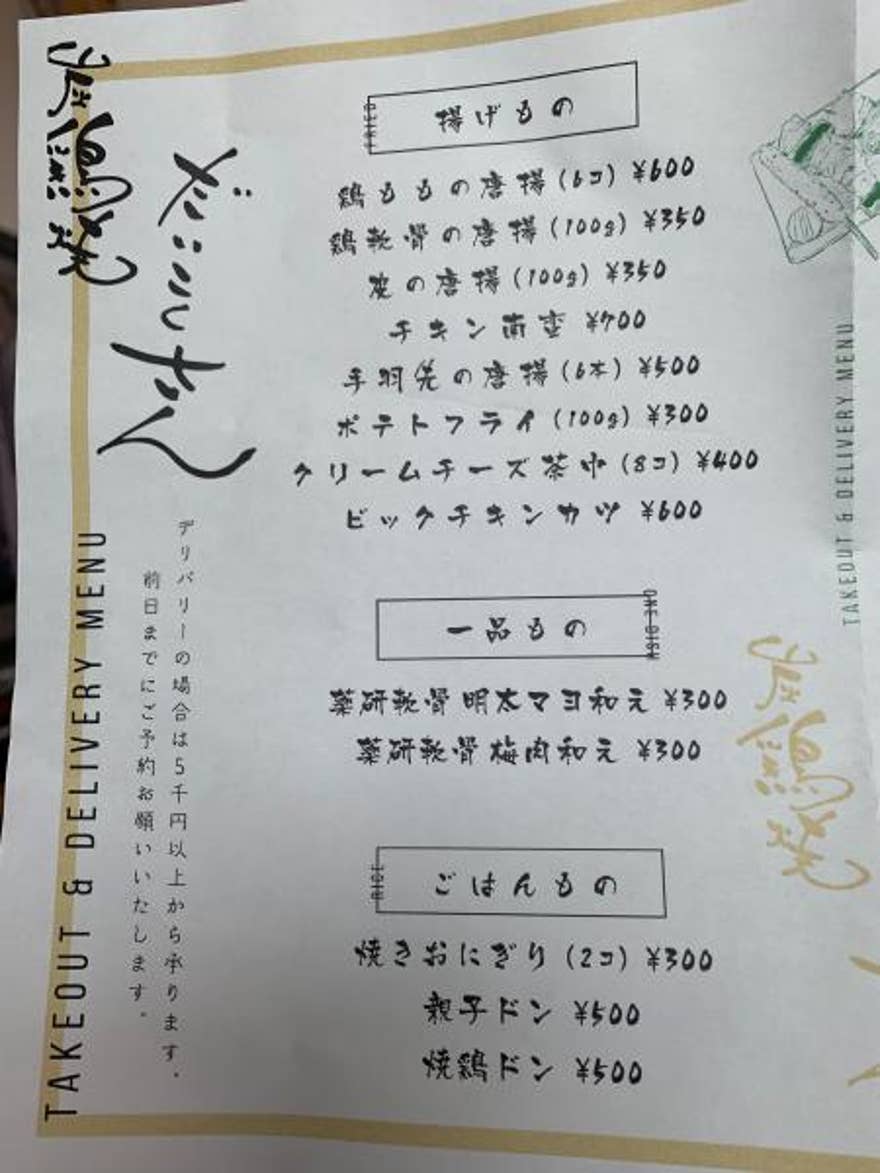 炭火焼鳥
ぎんちゃん
TAKEOUT & DELIVERY MENU
デリバリーの場合は5千円以上から承ります。
前日までにご予約お願いいたします。
FRIED
揚げもの
鶏ももの唐揚(6コ) ¥600
鶏軟骨の唐揚(100g) ¥350
皮の唐揚(100g) ¥350
チキン南蛮 ¥700
手羽先の唐揚(6本) ¥500
ポテトフライ(100g) ¥300
クリームチーズ茶巾(8コ) ¥400
ビックチキンカツ ¥600
ONE DISH
一品もの
薬研軟骨 明太マヨ和え ¥300
薬研軟骨 梅肉和え ¥300
RICE
ごはんもの
焼きおにぎり(2コ) ¥300
親子ドン ¥500
焼鶏ドン ¥500
TAKEOUT & DELIVERY MENU